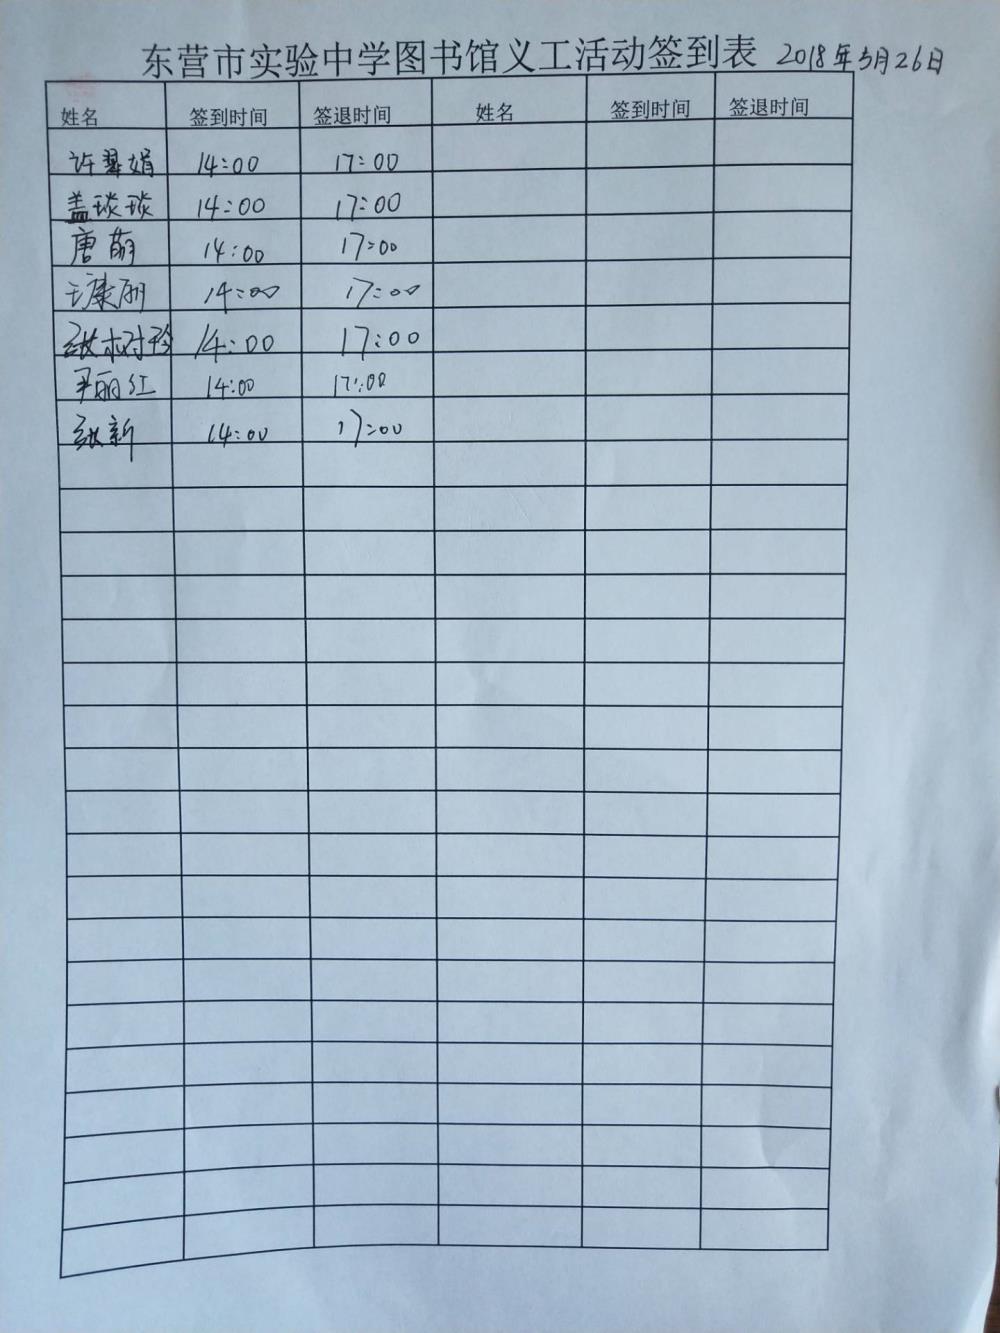 东营市实验中学图书馆义工活动签到表 2018年3月26日
姓名 签到时间 签退时间 姓名 签到时间 签退时间
许翠娟 14:00 17:00
盖琰琰 14:00 17:00
唐萌 14:00 17:00
王康丽 14:00 17:00
张树玲 14:00 17:00
尹丽红 14:00 17:00
张新 14:00 17:00